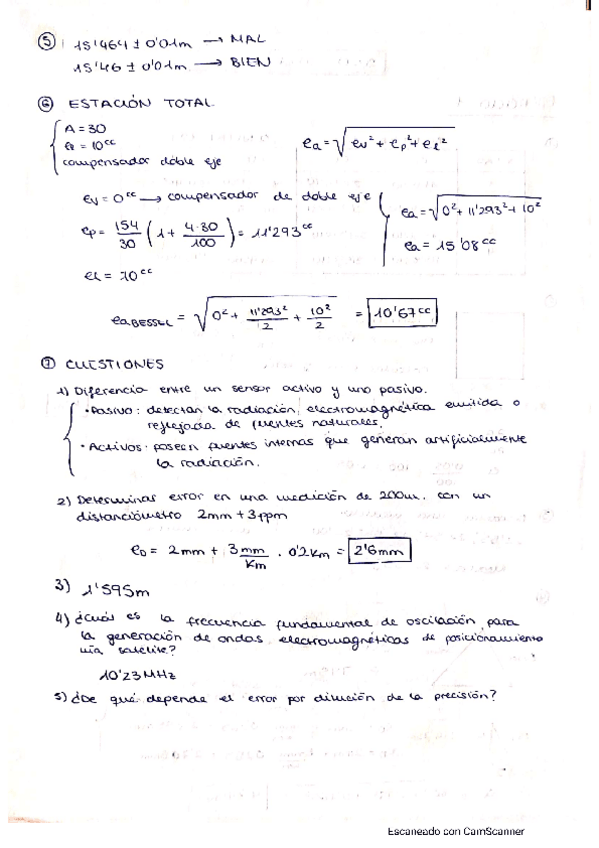 ⑤ 15'464 ± 0'01m → MAL
15'46 ± 0'01m → BIEN
⑥ ESTACIÓN TOTAL
A = 30
el = 10cc
compensador doble eje
ea = √(ev² + ep² + el²)
ev = 0cc → compensador de doble eje
ep = 154/30 (1 + 4·30/100) = 11'293cc
ea = √(0² + 11'293² + 10²)
ea = 15'08cc
el = 10cc
ea BESSEL = √(0² + 11'293²/2 + 10²/2) = 10'67cc
⑦ CUESTIONES
1) Diferencia entre un sensor activo y uno pasivo.
• Pasivo: detectan la radiación electromagnética emitida o
reflejada de fuentes naturales.
• Activos: poseen fuentes internas que generan artificialmente
la radiación.
2) Determinar error en una medición de 200m. con un
distanciómetro 2mm + 3ppm
eD = 2mm + 3 mm/Km · 0'2Km = 2'6mm
3) 1'595m
4) ¿Cuál es la frecuencia fundamental de oscilación para
la generación de ondas electromagnéticas de posicionamiento
vía satélite?
10'23 MHz
5) ¿De qué depende el error por dilución de la precisión?
Escaneado con CamScanner